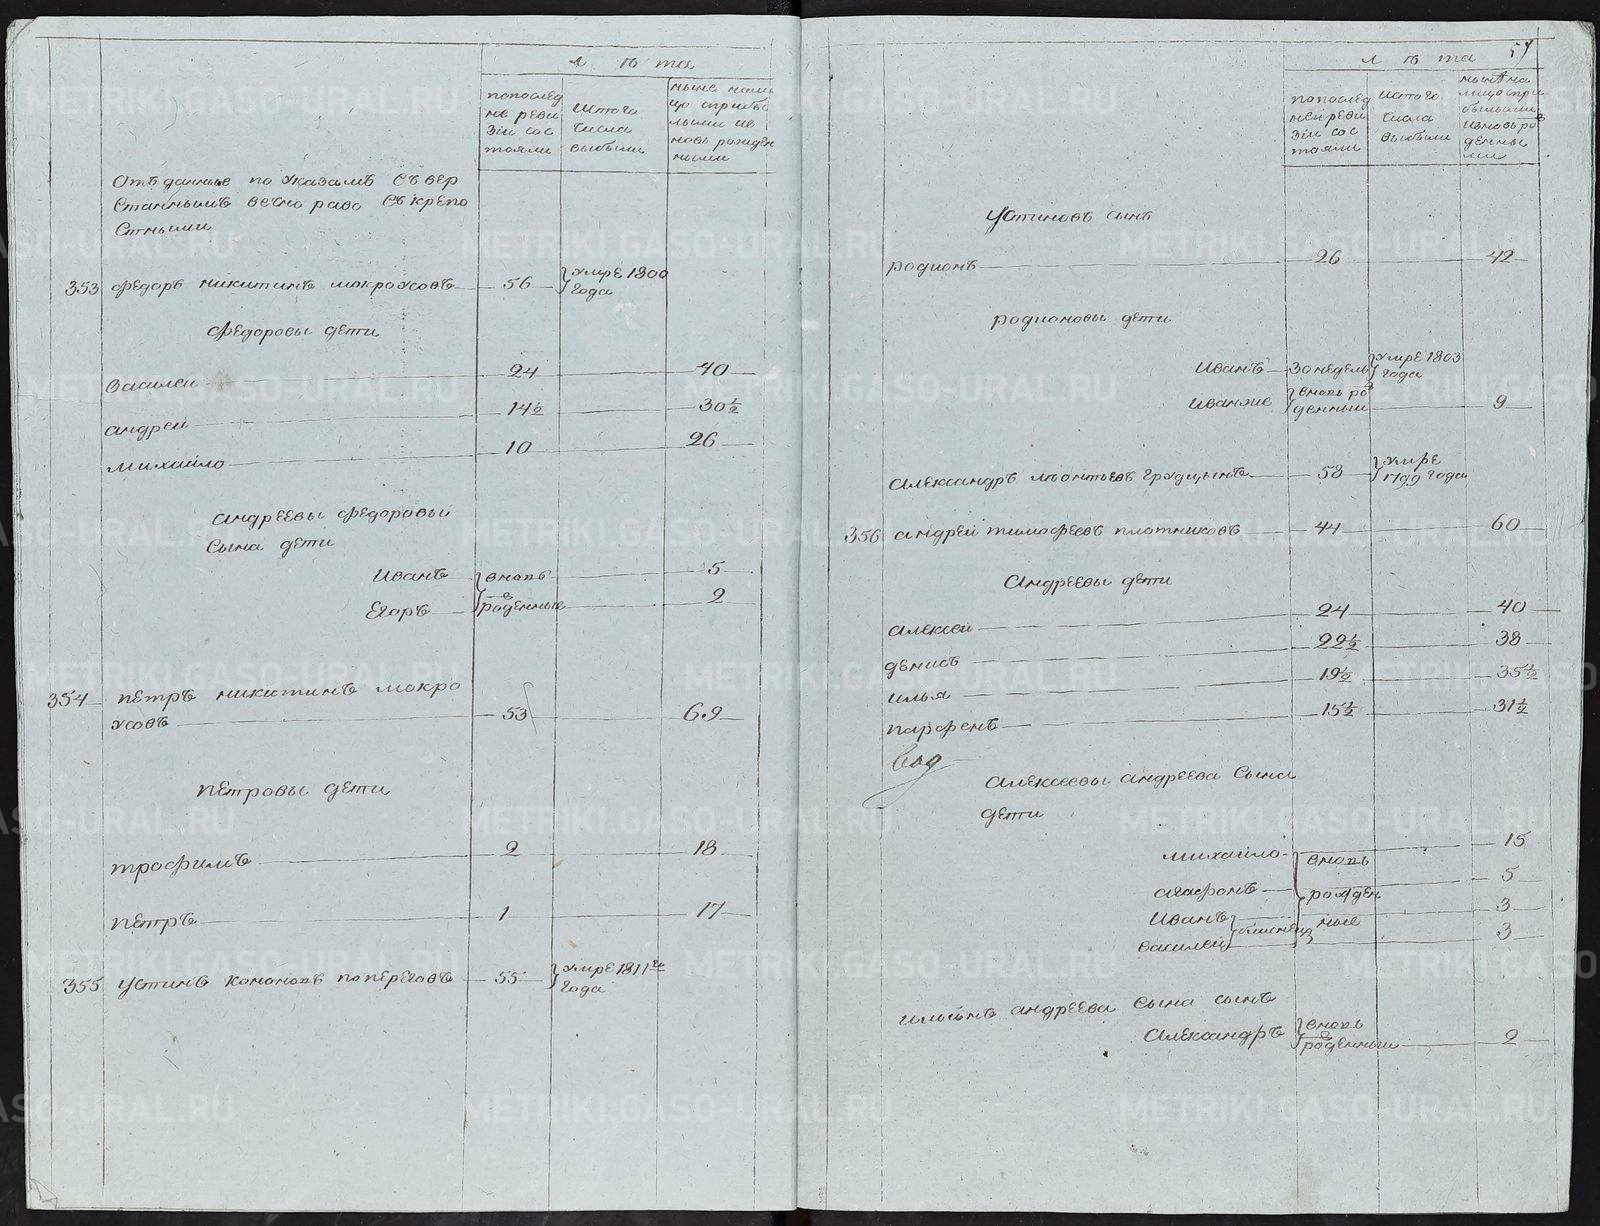 лѣта
попослед
не реви
зіи сос
тояли
Истого
числа
выбыли
ныне нали
цо сприбы
лыми ив
новь рожден
ными
Отъданные по Указамъ Съ вер
Станнымъ вечно равo Съкрепо
Стными
353 федоръ никитинъ мокроусовъ 56 умре 1800
года
федоровы дети
василеи 24 40
андреи 14½ 30½
михаило 10 26
андреевы федоровы
Сына дети
Иванъ вновь 5
Егоръ рожденные 2
354 петръ никитинъ мокро
усовъ 53 69
петровы дети
трофимъ 2 18
петръ 1 17
355 устинъ кононовъ попереговъ 55 умре 1811го
года
57
лѣта
попослед
неи реви
зіи сос
тояли
Истого
числа
выбыли
ныне на
лицоспри
былыми
ивновьро
денны
ми
Устиновъ сынъ
родионъ 26 42
родионовы дети
Иванъ 30 недель умре 1803
года
Иванже вновь рож
денныи 9
александръ леонтьевъ грудцынъ 58 умре
1799 года
356 андреи тимофеевъ плотниковъ 44 60
Андреевы дети
алексеи 24 40
денисъ 22½ 38
илья 19½ 35½
парфенъ 15½ 31½
алексеевы андреева Сына
дети
михаило вновь 15
агафонъ рожден 5
Иванъ близнецы ные 3
василеи 3
ильинъ андреева Сына сынъ
Александръ вновь
рожденныи 2
METRIKI.GASO-URAL.RU